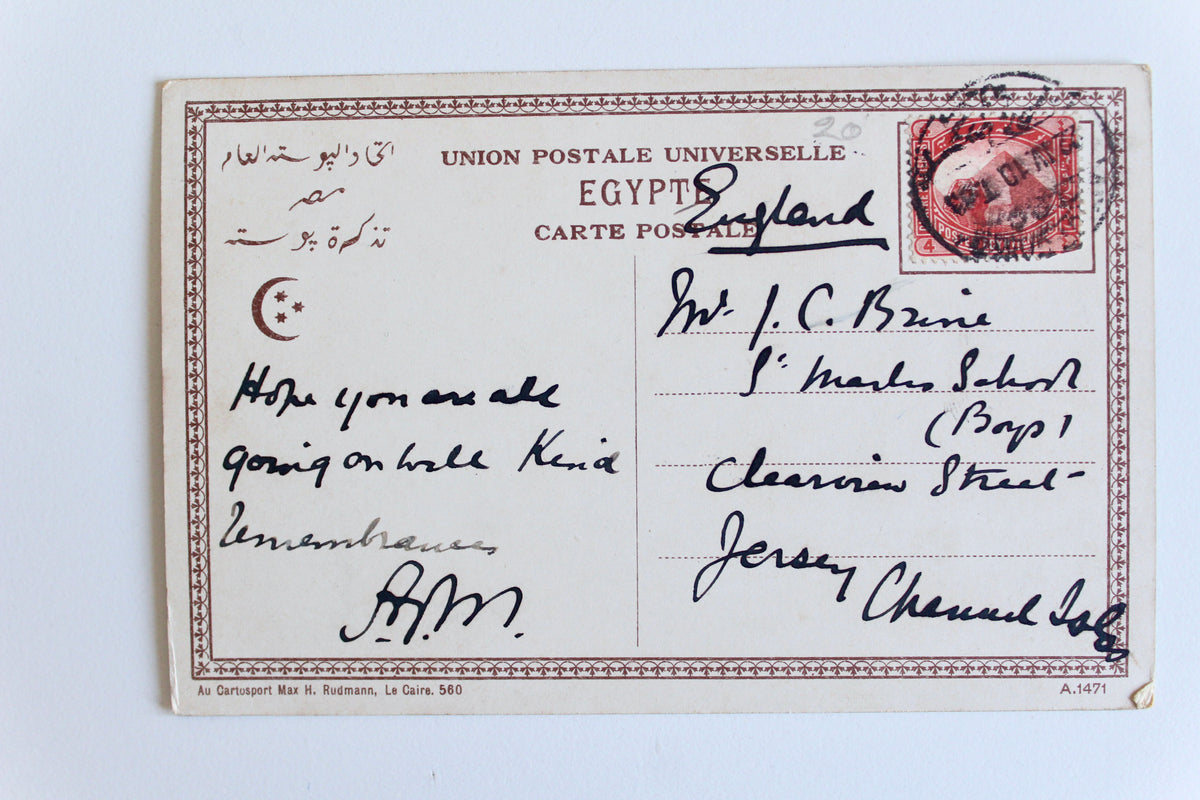 اتحاد البوسته العام
مصر
تذكرة بوسته
UNION POSTALE UNIVERSELLE
EGYPTE
CARTE POSTALE
20
4
England
Hope you are all
going on well Kind
remembrances
Mr. J. C. Brine
St Marks School
(Boys)
Clearview Street
Jersey
Channel Isles
Au Cartosport Max H. Rudmann, Le Caire. 560
A.1471